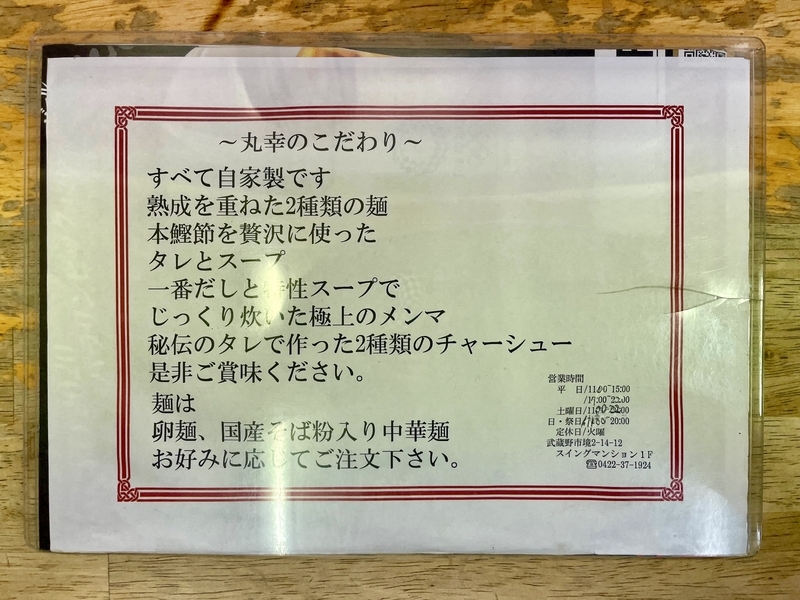 ～丸幸のこだわり～
すべて自家製です
熟成を重ねた2種類の麺
本鰹節を贅沢に使った
タレとスープ
一番だしと特性スープで
じっくり炊いた極上のメンマ
秘伝のタレで作った2種類のチャーシュー
是非ご賞味ください。
麺は
卵麺、国産そば粉入り中華麺
お好みに応じてご注文下さい。
営業時間
平 日/11:00~15:00
/17:00~22:00
土曜日/
日・祭日/
定休日/火曜
武蔵野市境2-14-12
スイングマンション1F
☎0422-37-1924